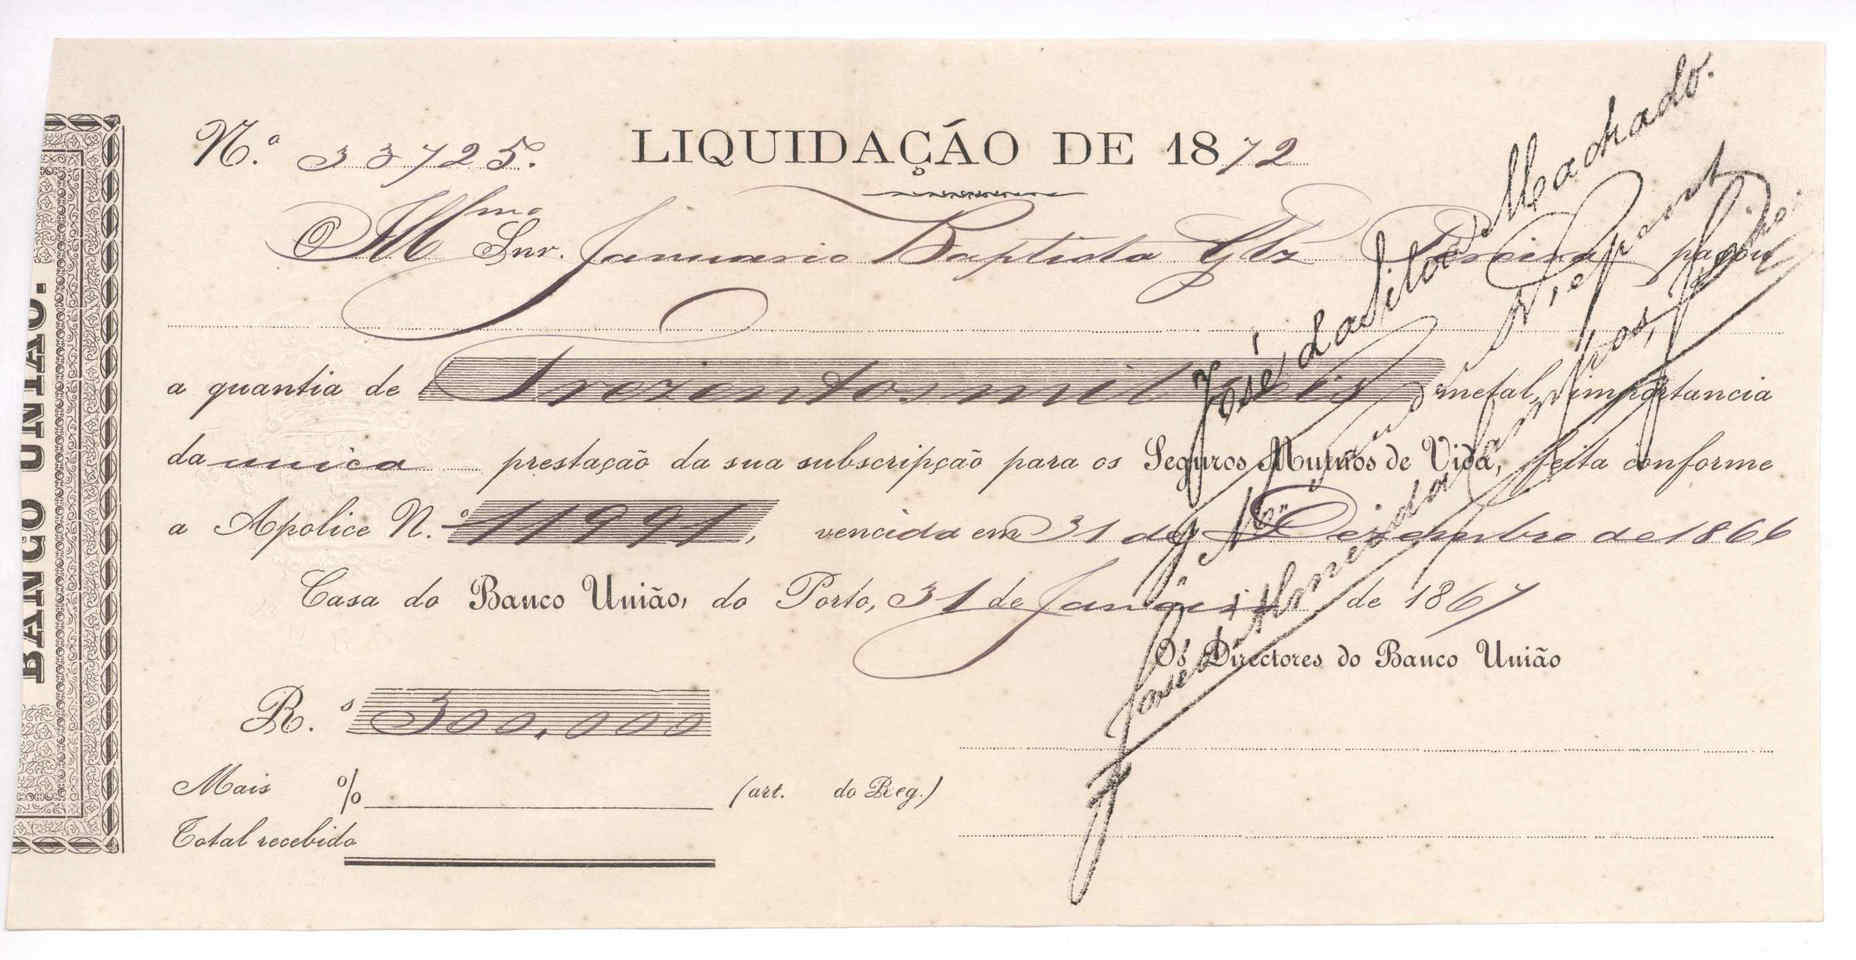 BANCO UNIÃO.
N.º 33725. LIQUIDAÇÃO DE 1872
O Illmo Snr. Januario Baptista Glz Pereira pagou
a quantia de Trezentos mil reis metal, importancia
da unica prestação da sua subscripção para os Seguros Mutuos de Vida, feita conforme
a Apolice N.º 11991, vencida em 31 de Dezembro de 1866
Casa do Banco União, do Porto, 31 de Janeiro de 1867
Os Directores do Banco União
R.s 300,000
Mais % (art. do Reg.)
Total recebido
José da Silva Machado.